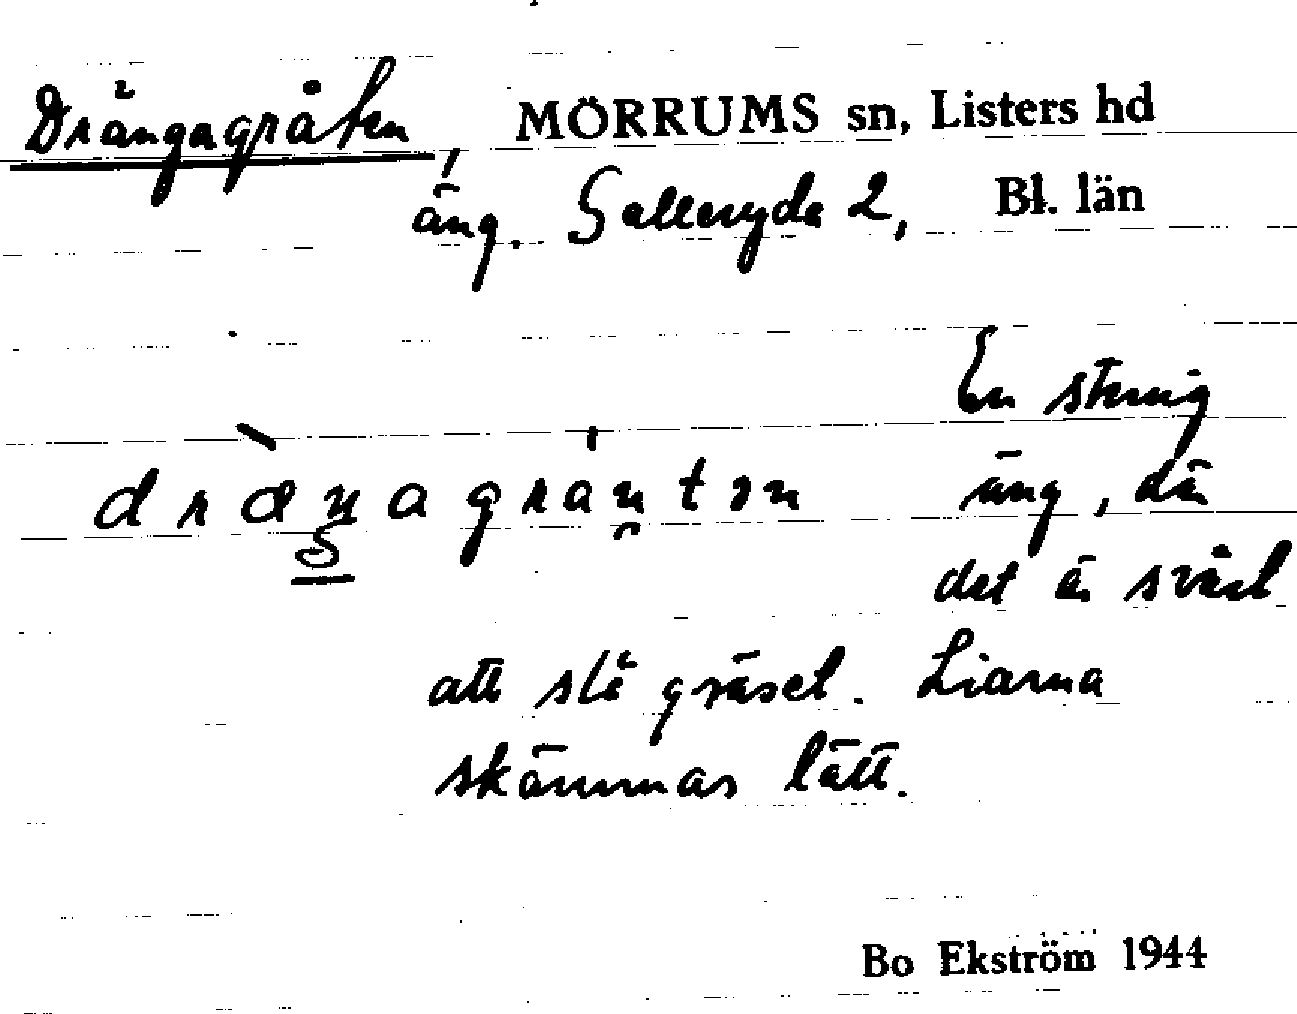 Drängagråten, MÖRRUMS sn, Listers hd
äng. Galleryda 2, Bl. län
En stenig
dræŋagråu̯tən äng, där
det är svårt
att slå gräset. Liarna
skämmas lätt.
Bo Ekström 1944